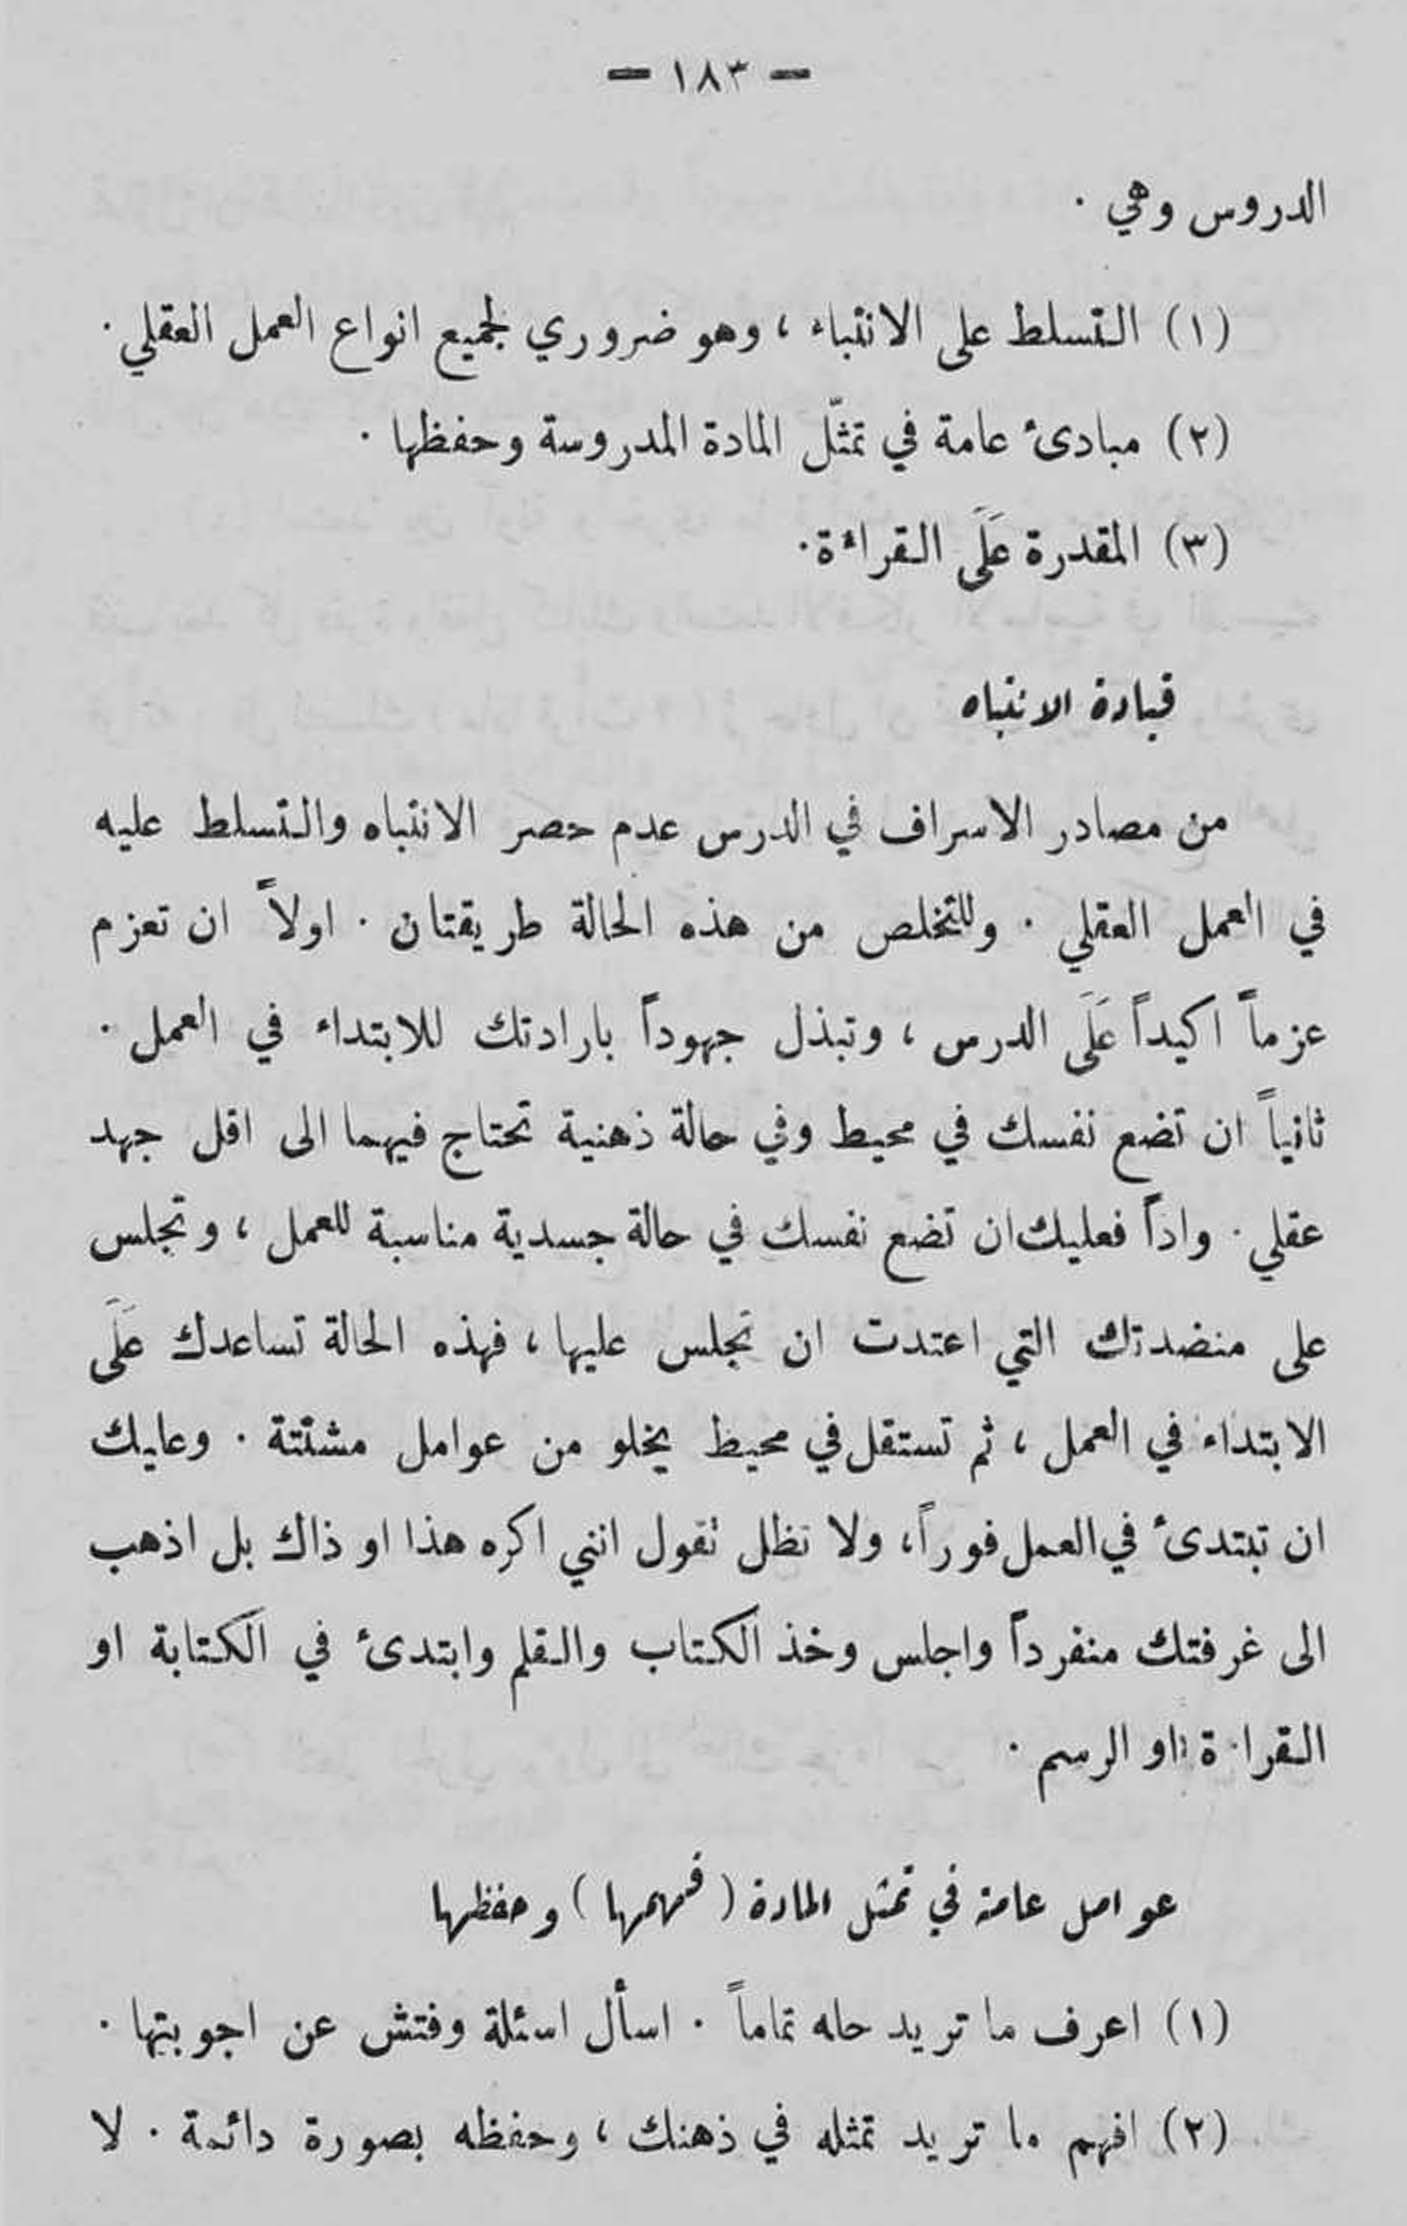 — ١٨٣ —
الدروس وهي .
(١) التسلط على الانتباه ، وهو ضروري لجميع انواع العمل العقلي .
(٢) مبادئ عامة في تمثّل المادة المدروسة وحفظها .
(٣) المقدرة عَلَى القراءة .
قيادة الانتباه
من مصادر الاسراف في الدرس عدم حصر الانتباه والتسلط عليه
في العمل العقلي . وللتخلص من هذه الحالة طريقتان . اولاً ان تعزم
عزماً اكيداً عَلَى الدرس ، وتبذل جهوداً بارادتك للابتداء في العمل .
ثانياً ان تضع نفسك في محيط وفي حالة ذهنية تحتاج فيهما الى اقل جهد
عقلي . واذاً فعليك ان تضع نفسك في حالة جسدية مناسبة للعمل ، وتجلس
على منضدتك التي اعتدت ان تجلس عليها ، فهذه الحالة تساعدك عَلَى
الابتداء في العمل ، ثم تستقل في محيط يخلو من عوامل مشتتة . وعليك
ان تبتدئ في العمل فوراً ، ولا تظل تقول انني اكره هذا او ذاك بل اذهب
الى غرفتك منفرداً واجلس وخذ الكتاب والقلم وابتدئ في الكتابة او
القراءة او الرسم .
عوامل عامة في تمثل المادة ( فهمها ) وحفظها
(١) اعرف ما تريد حله تماماً . اسأل اسئلة وفتش عن اجوبتها .
(٢) افهم ما تريد تمثله في ذهنك ، وحفظه بصورة دائمة . لا